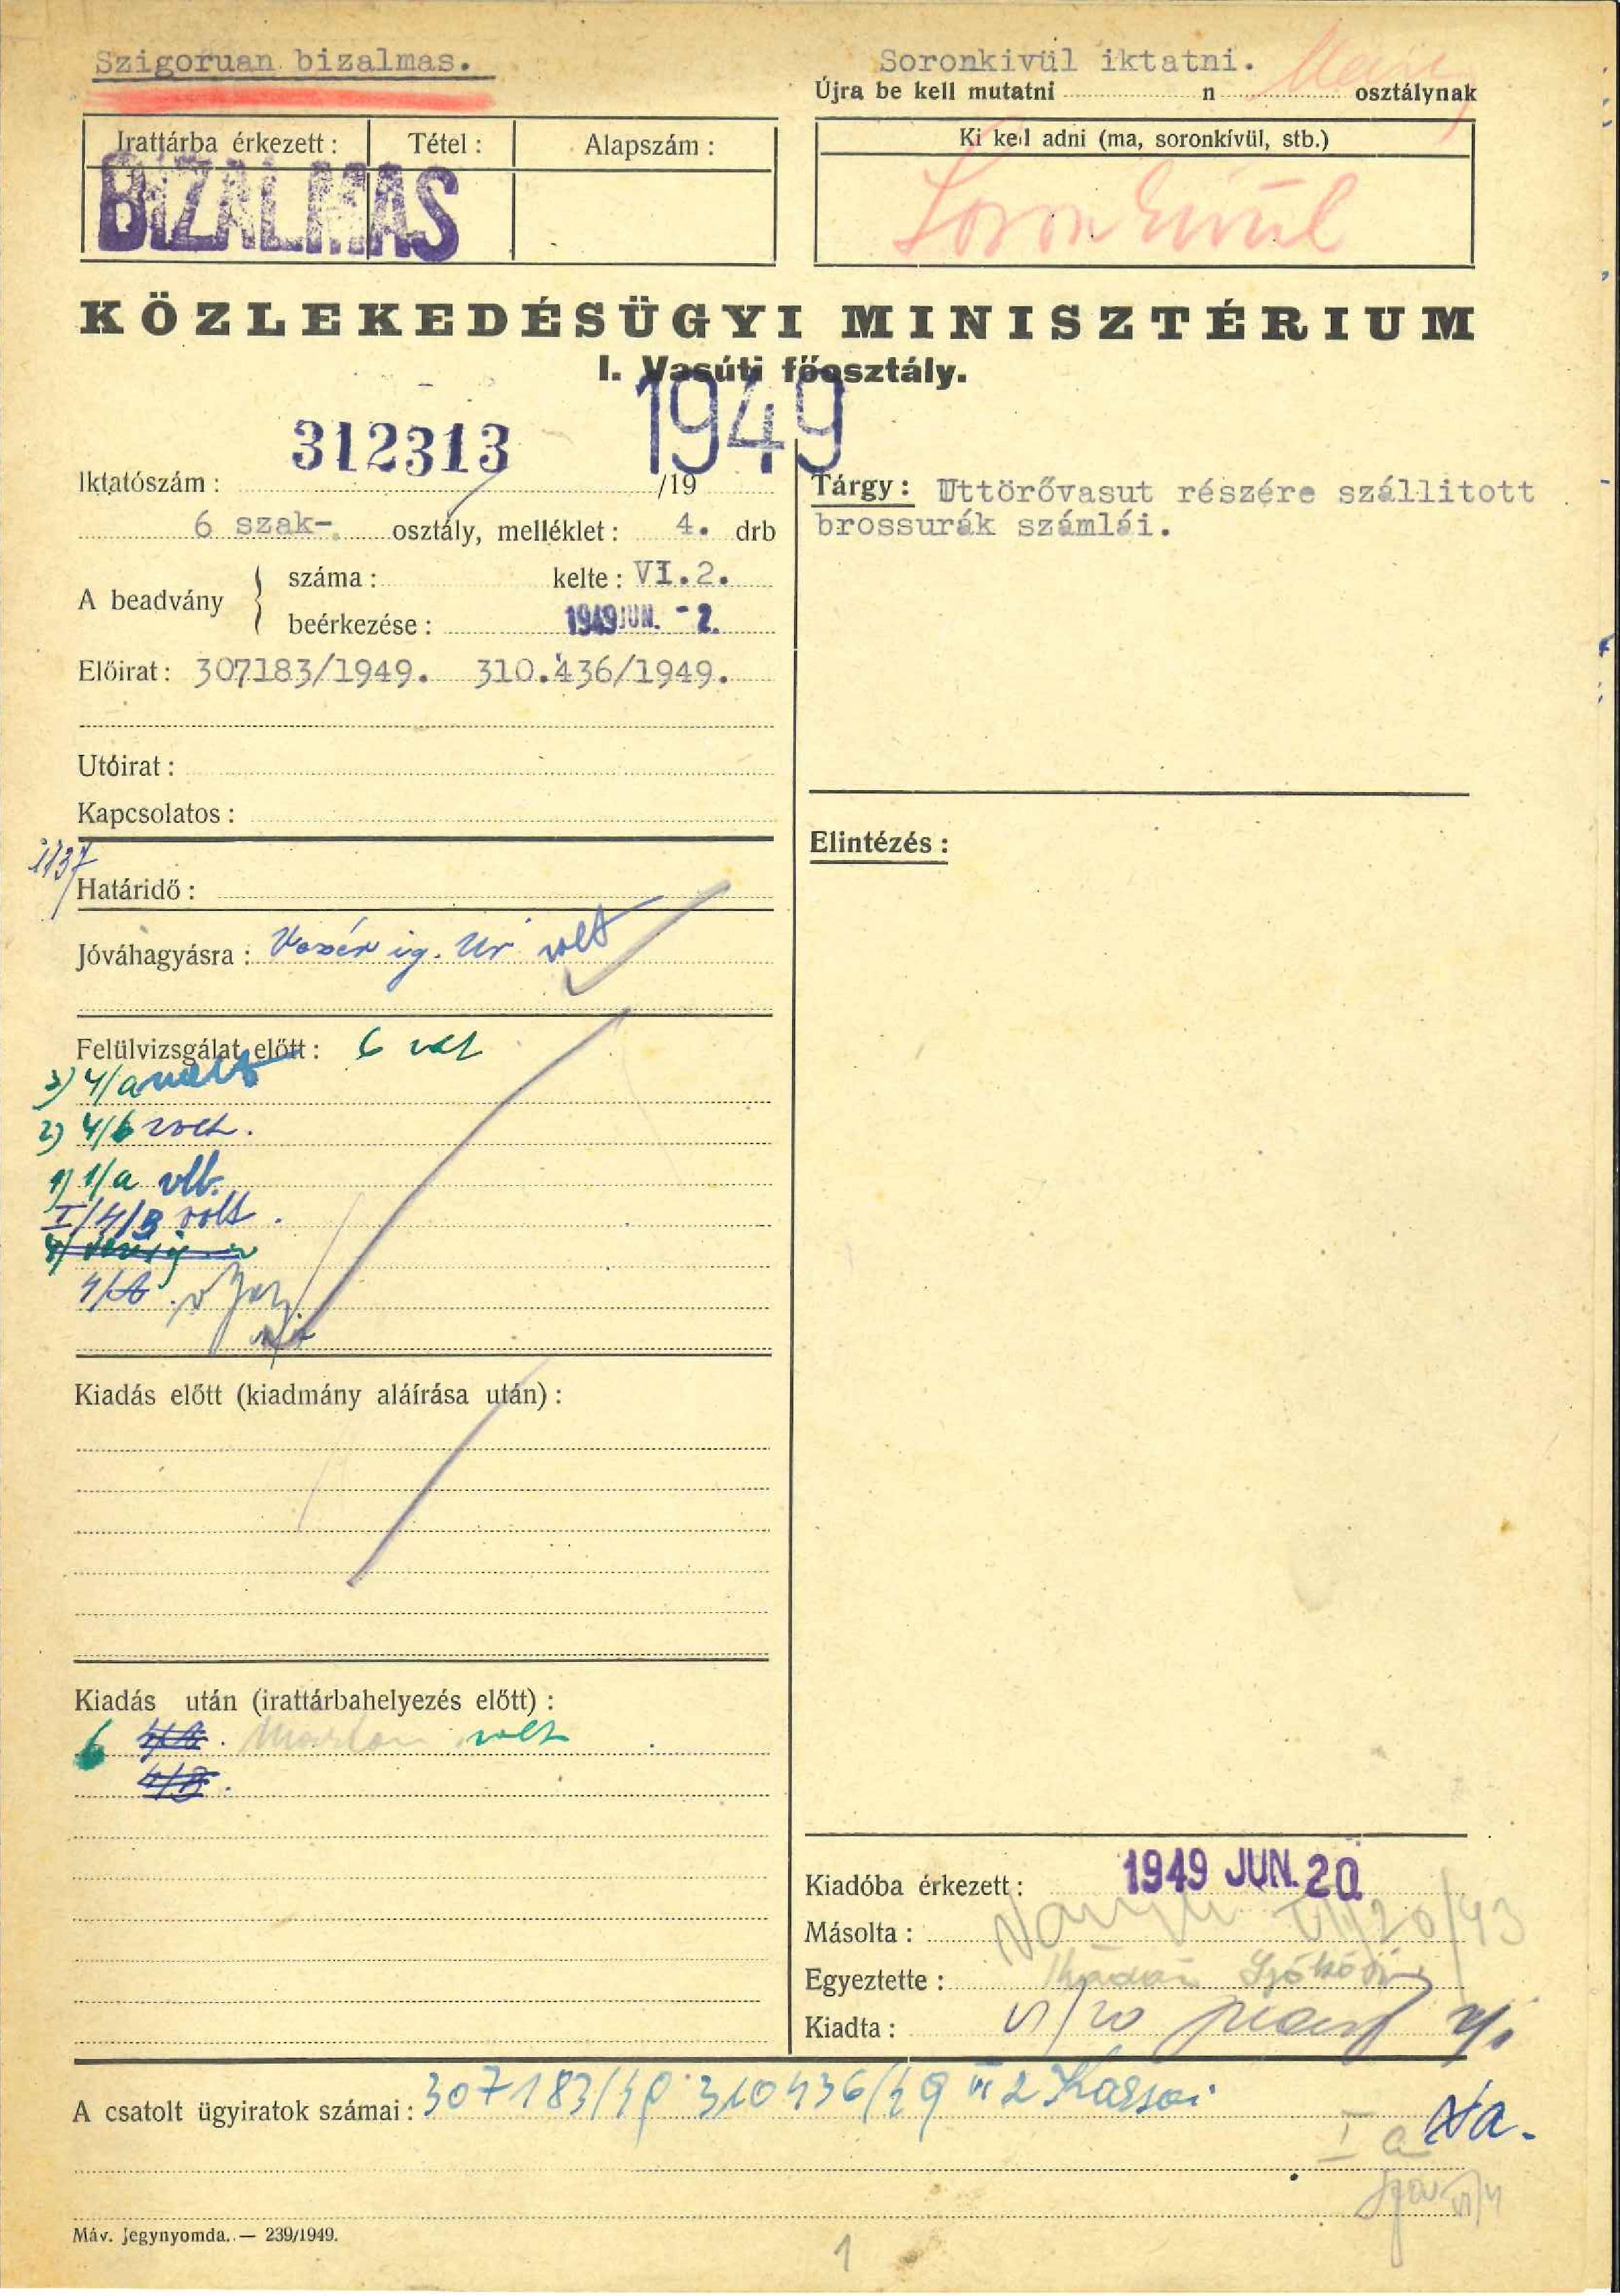 Szigoruan bizalmas.
Soronkivül iktatni.
Újra be kell mutatni n osztálynak
Irattárba érkezett : Tétel : Alapszám :
BIZALMAS
Ki kell adni (ma, soronkívül, stb.)
Soronkivül
KÖZLEKEDÉSÜGYI MINISZTÉRIUM
I. Vasúti főosztály.
1949
312313
Iktatószám : /19
6 szak- osztály, melléklet : 4. drb
A beadvány
száma : kelte : VI.2.
beérkezése : 1949 JUN. - 2.
Előirat : 307183/1949. 310.436/1949.
Utóirat :
Kapcsolatos :
1137
Határidő :
Jóváhagyásra : Vezér ig. Ur volt
Felülvizsgálat előtt : 6 volt
3) 4/a volt
2) 4/b volt.
1) 1/a
I/4/B volt.
4/A
Kiadás előtt (kiadmány aláírása után) :
Kiadás után (irattárbahelyezés előtt) :
6 4/A. volt
4/B.
Tárgy : Uttörővasut részére szállitott
brossurák számlái.
Elintézés :
Kiadóba érkezett : 1949 JUN. 20
Másolta :
Egyeztette :
Kiadta : VI/20
A csatolt ügyiratok számai : 307183/49 310436/49 VI 2 Kassai
I a
Máv. Jegynyomda. — 239/1949.
1